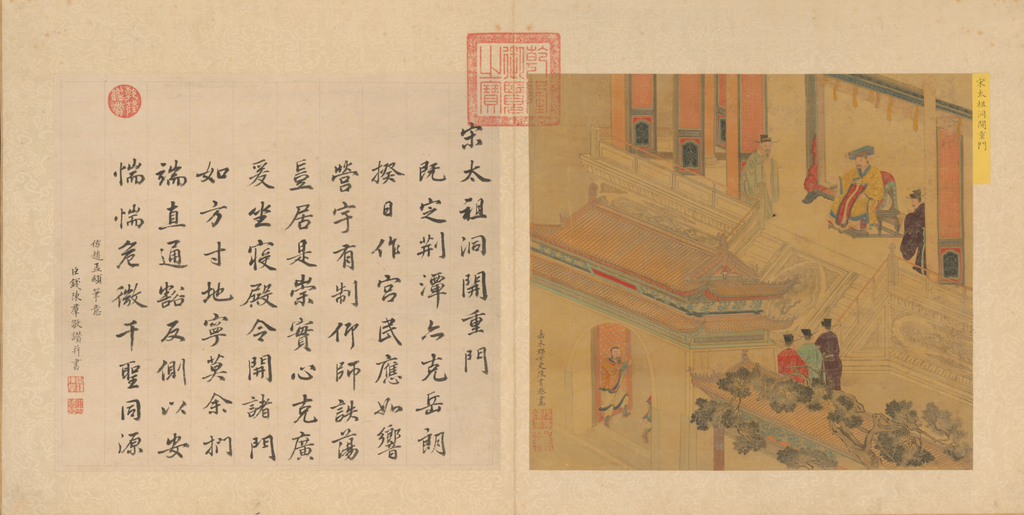 宋太祖洞開重門
嘉禾女史陳書恭畫
乾隆御覽之寶
宋太祖洞開重門
既定荆潭亦克岳朗
揆日作宮民應如響
營宇有制仰師訣蕩
豈居是崇實心克廣
爰坐寢殿令開諸門
如方寸地寧莫余捫
端直通豁反側以安
惴惴危微千聖同源
仿趙孟頫筆意
臣錢陳羣敬讚并書
乾隆鑑賞